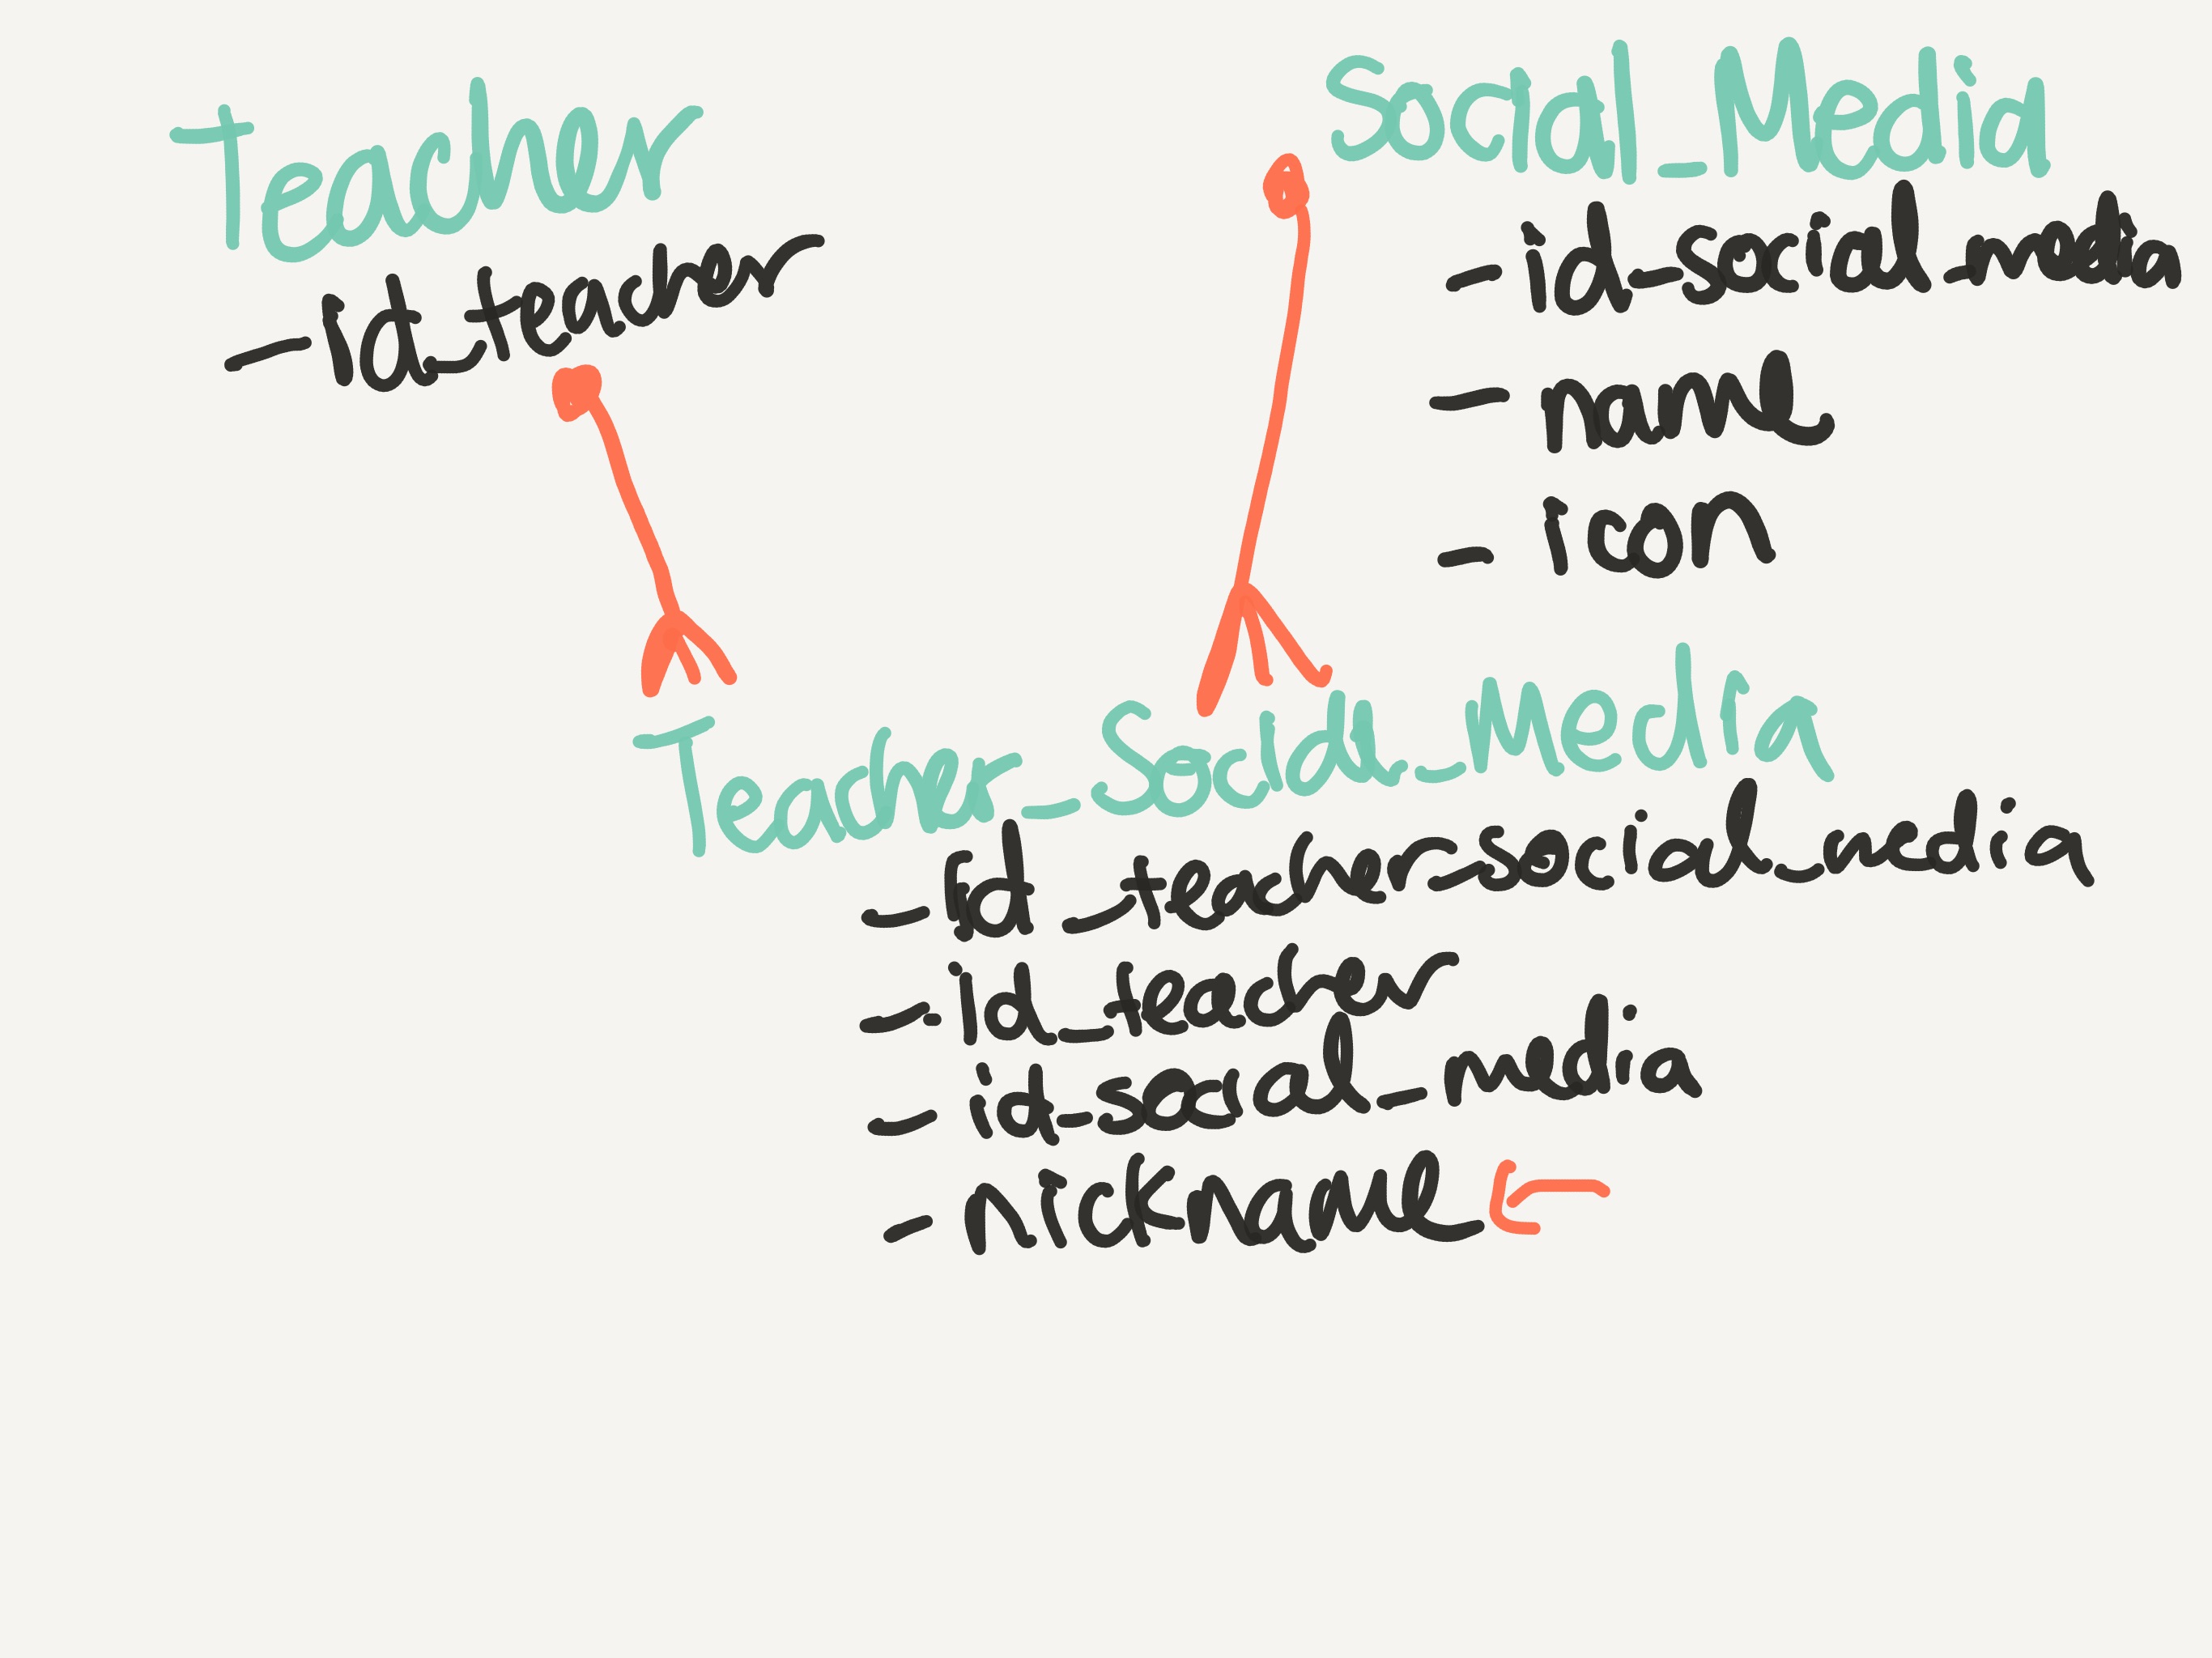 Teacher
- id_teacher
Social_Media
- id_social_media
- name
- icon
Teacher_Social_Media
- id_teacher_social_media
- id_teacher
- id_social_media
- nickname